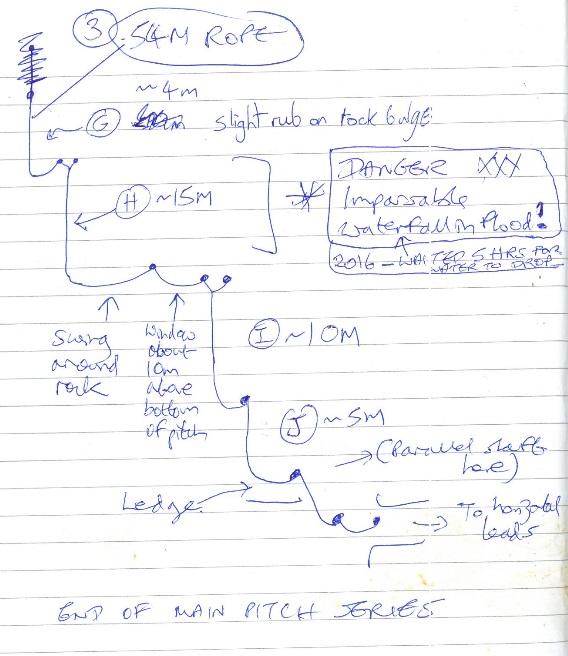 3 54M ROPE
~4m
G slight rub on rock bulge
H ~15M
DANGER XXX
Impassable
waterfall in flood!
2016 - WAITED 5 HRS FOR
WATER TO DROP
Swing
around
rock
window
about
10m
above
bottom
of pitch
I ~10M
J ~5M
(Parallel shaft
here)
Ledge
To horizontal
leads
END OF MAIN PITCH SERIES